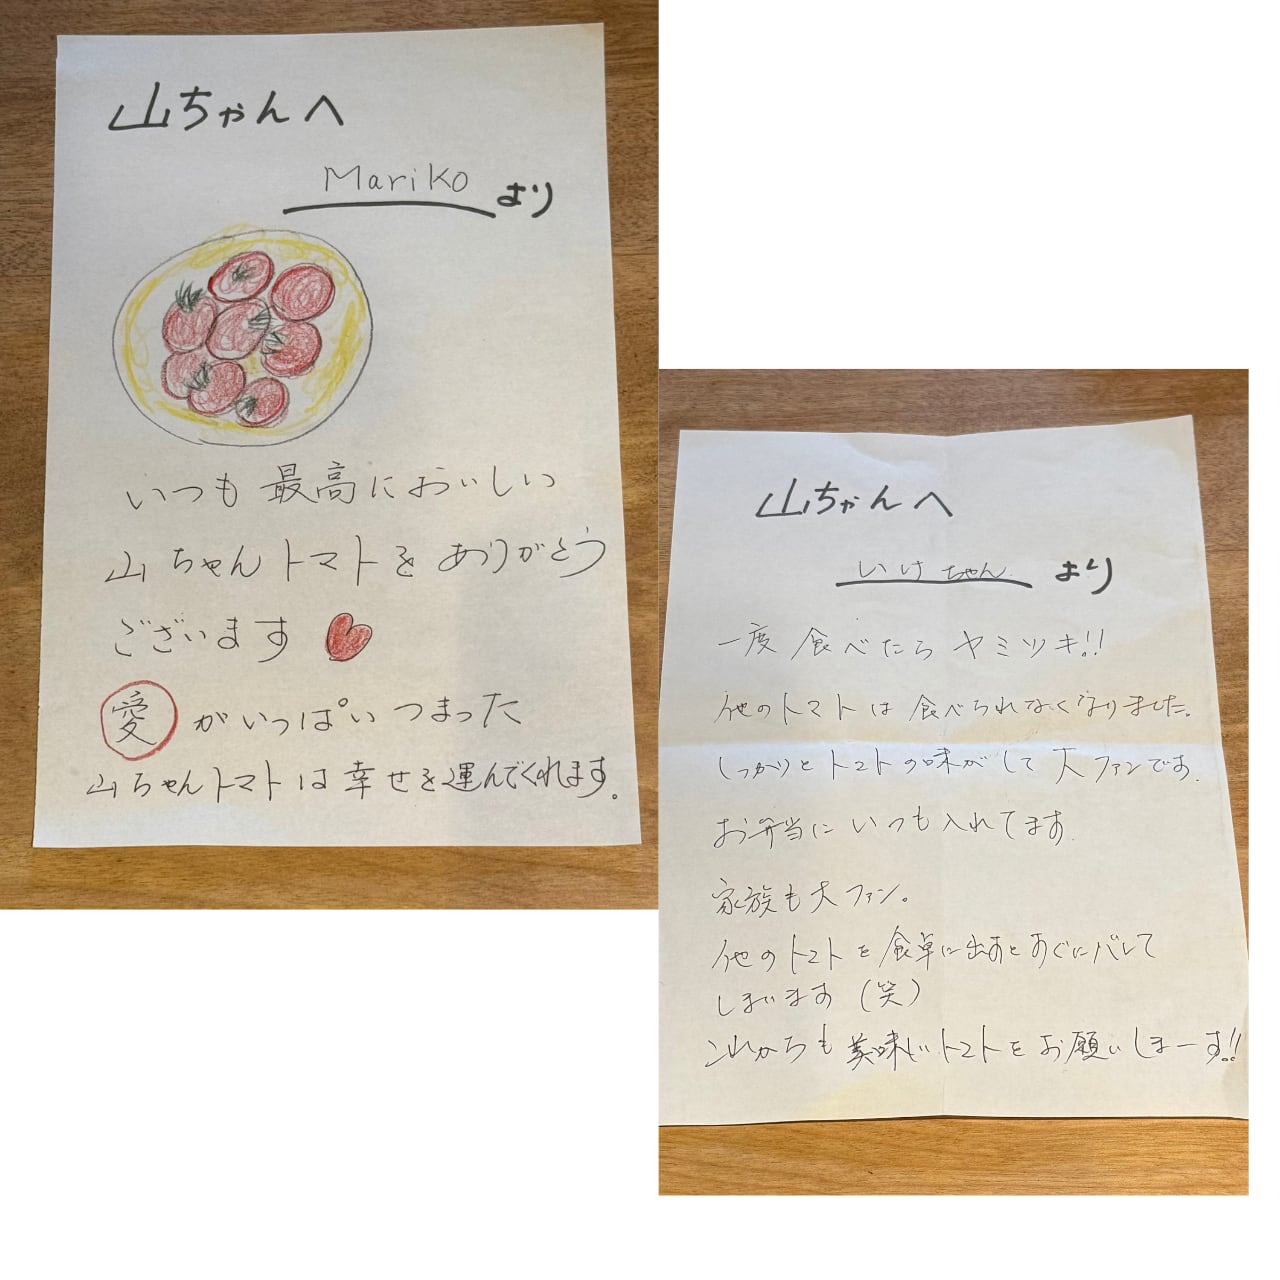 山ちゃんへ
Mariko より
いつも最高においしい
山ちゃんトマトをありがとう
ございます
愛がいっぱいつまった
山ちゃんトマトは幸せを運んでくれます。
山ちゃんへ
いけちゃん より
一度食べたらヤミツキ!!
他のトマトは食べられなくなりました。
しっかりとトマトの味がして大ファンです。
お弁当にいつも入れてます。
家族も大ファン。
他のトマトを食卓に出すとすぐにバレて
しまいます(笑)
これからも美味しいトマトをお願いしまーす!!